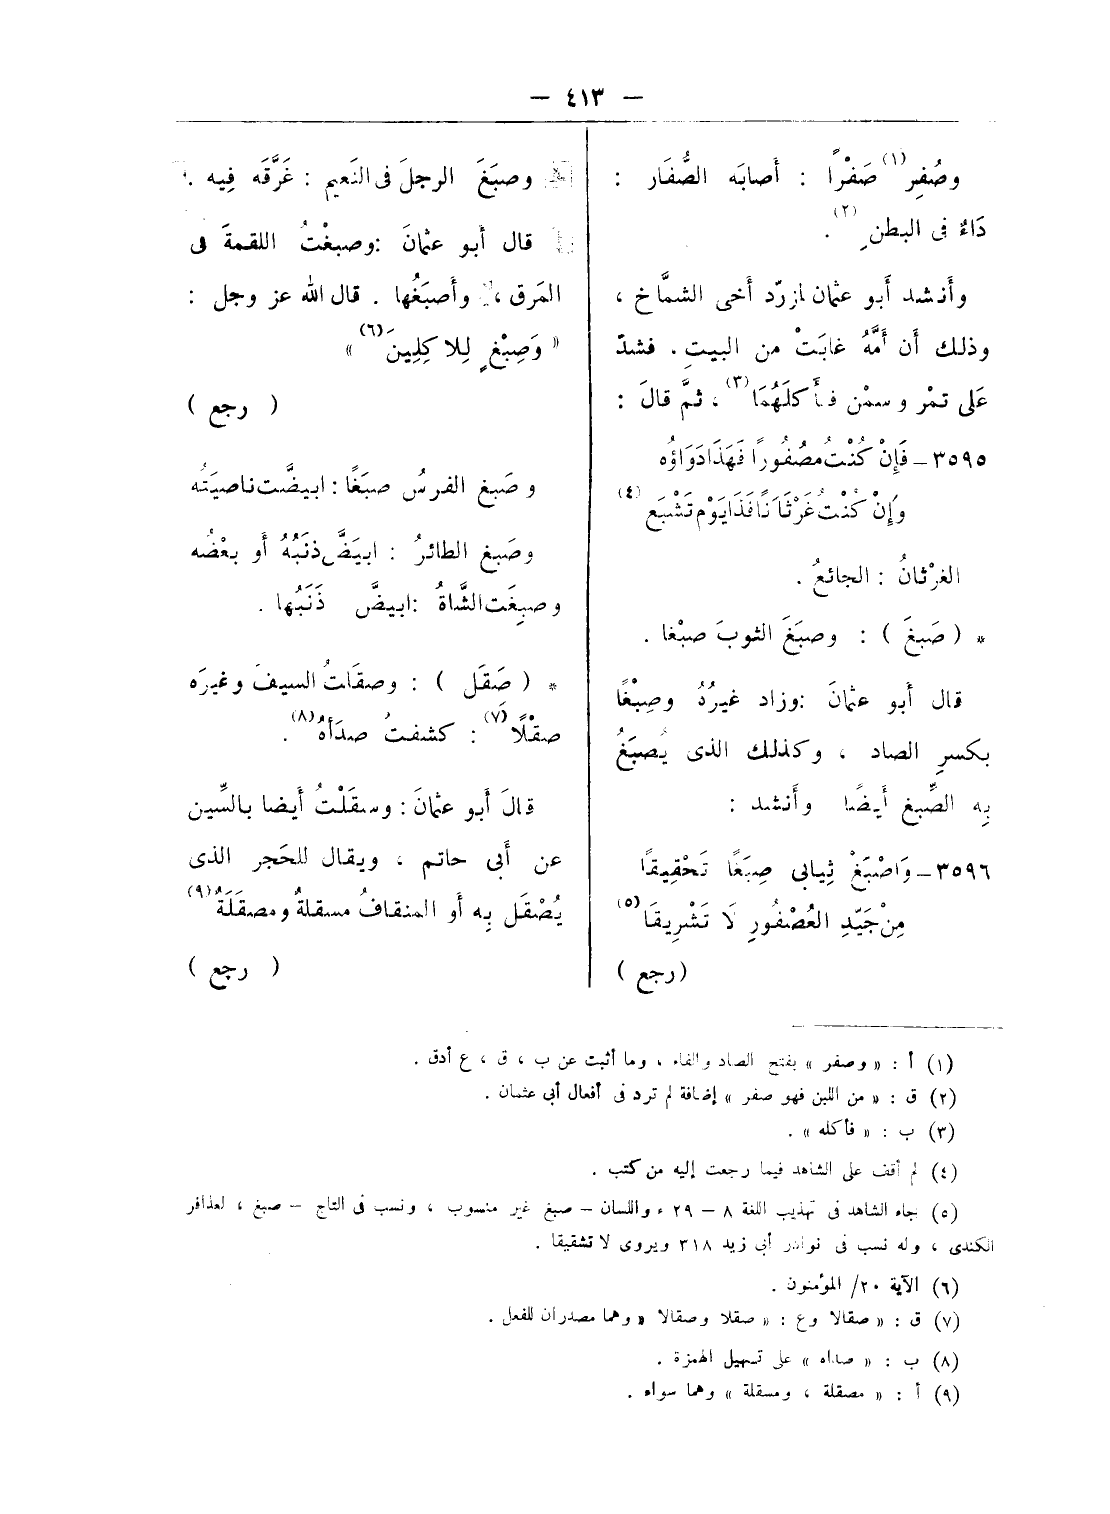 — ٤١٣ —
وصُفِر(١) صَفْرًا : أصابَه الصُّفَار :
دَاءٌ فى البطنِ(٢).
وأنشد أبو عثمان لمزرّد أخى الشمَّاخ ،
وذلك أن أمَّهُ غابَتْ من البيتِ . فشدّ
عَلى تمْر وسمْن فأكلَهُمَا(٣)، ثمَّ قالَ :
٣٥٩٥ – فَإِنْ كُنْتَ مصْفُورًا فَهَذَا دَوَاؤُه
وَإِنْ كُنْتَ غَرْثَانًا فَذَا يَوْم تَشْبَع(٤)
الغرْثانُ : الجائعُ .
* ( صَبَغَ ) : وصبَغَ الثوبَ صبْغا .
قال أبو عثمانَ : وزاد غيرُهُ وصِبْغًا
بكسرِ الصاد ، وكذلك الذى يُصبَغُ
بِه الصِّبغ أيضًا وأنشد :
٣٥٩٦ – وَاصْبَغْ ثِيابى صِبَغًا تَحْقِيقًا
مِنْ جَيّدِ العُصْفُورِ لَا تَشْرِيقَا(٥)
(رجع )
وصبَغَ الرجلَ فى النَعيم : غَرَّقَه فِيه .
قال أبو عثمانَ : وصبغْتُ اللقمةَ فى
المَرق ، وأصبَغُها . قال الله عز وجل :
« وَصِبْغٍ لِلاكِلِينَ(٦) »
( رجع )
وصَبغ الفرسُ صبَغًا : ابيضَّت ناصيَتُه
وصَبغ الطائرُ : ابيَضَّ ذنَبُهُ أو بعْضُه
وصبِغَت الشَّاةُ : ابيضَّ ذَنَبُها .
* ( صَقَل ) : وصقَلتُ السيفَ وغيرَه
صقْلًا(٧) : كشفتُ صدَأهُ(٨) .
قالَ أبو عثمانَ : وسقَلْتُ أيضا بالسِّين
عن أبى حاتم ، ويقال للحَجر الذى
يُصْقَل بِه أو المنقافُ مسقلةٌ ومصقلَةٌ(٩)
( رجع )
(١) أ : « وصفر » بفتح الصاد والفاء ، وما أثبت عن ب ، ق ، ع أدق .
(٢) ق : « من اللبن فهو صفر » إضافة لم ترد فى أفعال أبى عثمان .
(٣) ب : « فأكله » .
(٤) لم أقف على الشاهد فيما رجعت إليه من كتب .
(٥) جاء الشاهد فى تهذيب اللغة ٨ – ٢٩ ، واللسان – صبغ غير منسوب ، ونسب فى التاج – صبغ ، لعذافر
الكندى ، وله نسب فى نوادر أبى زيد ٣١٨ ويروى لا تشقيقا .
(٦) الآية ٢٠/ المؤمنون .
(٧) ق : « صقالا وع : « صقلا وصقالا » وهما مصدران للفعل .
(٨) ب : « صداه » على تسهيل الهمزة .
(٩) أ : « مصقلة ، ومسقلة » وهما سواء .